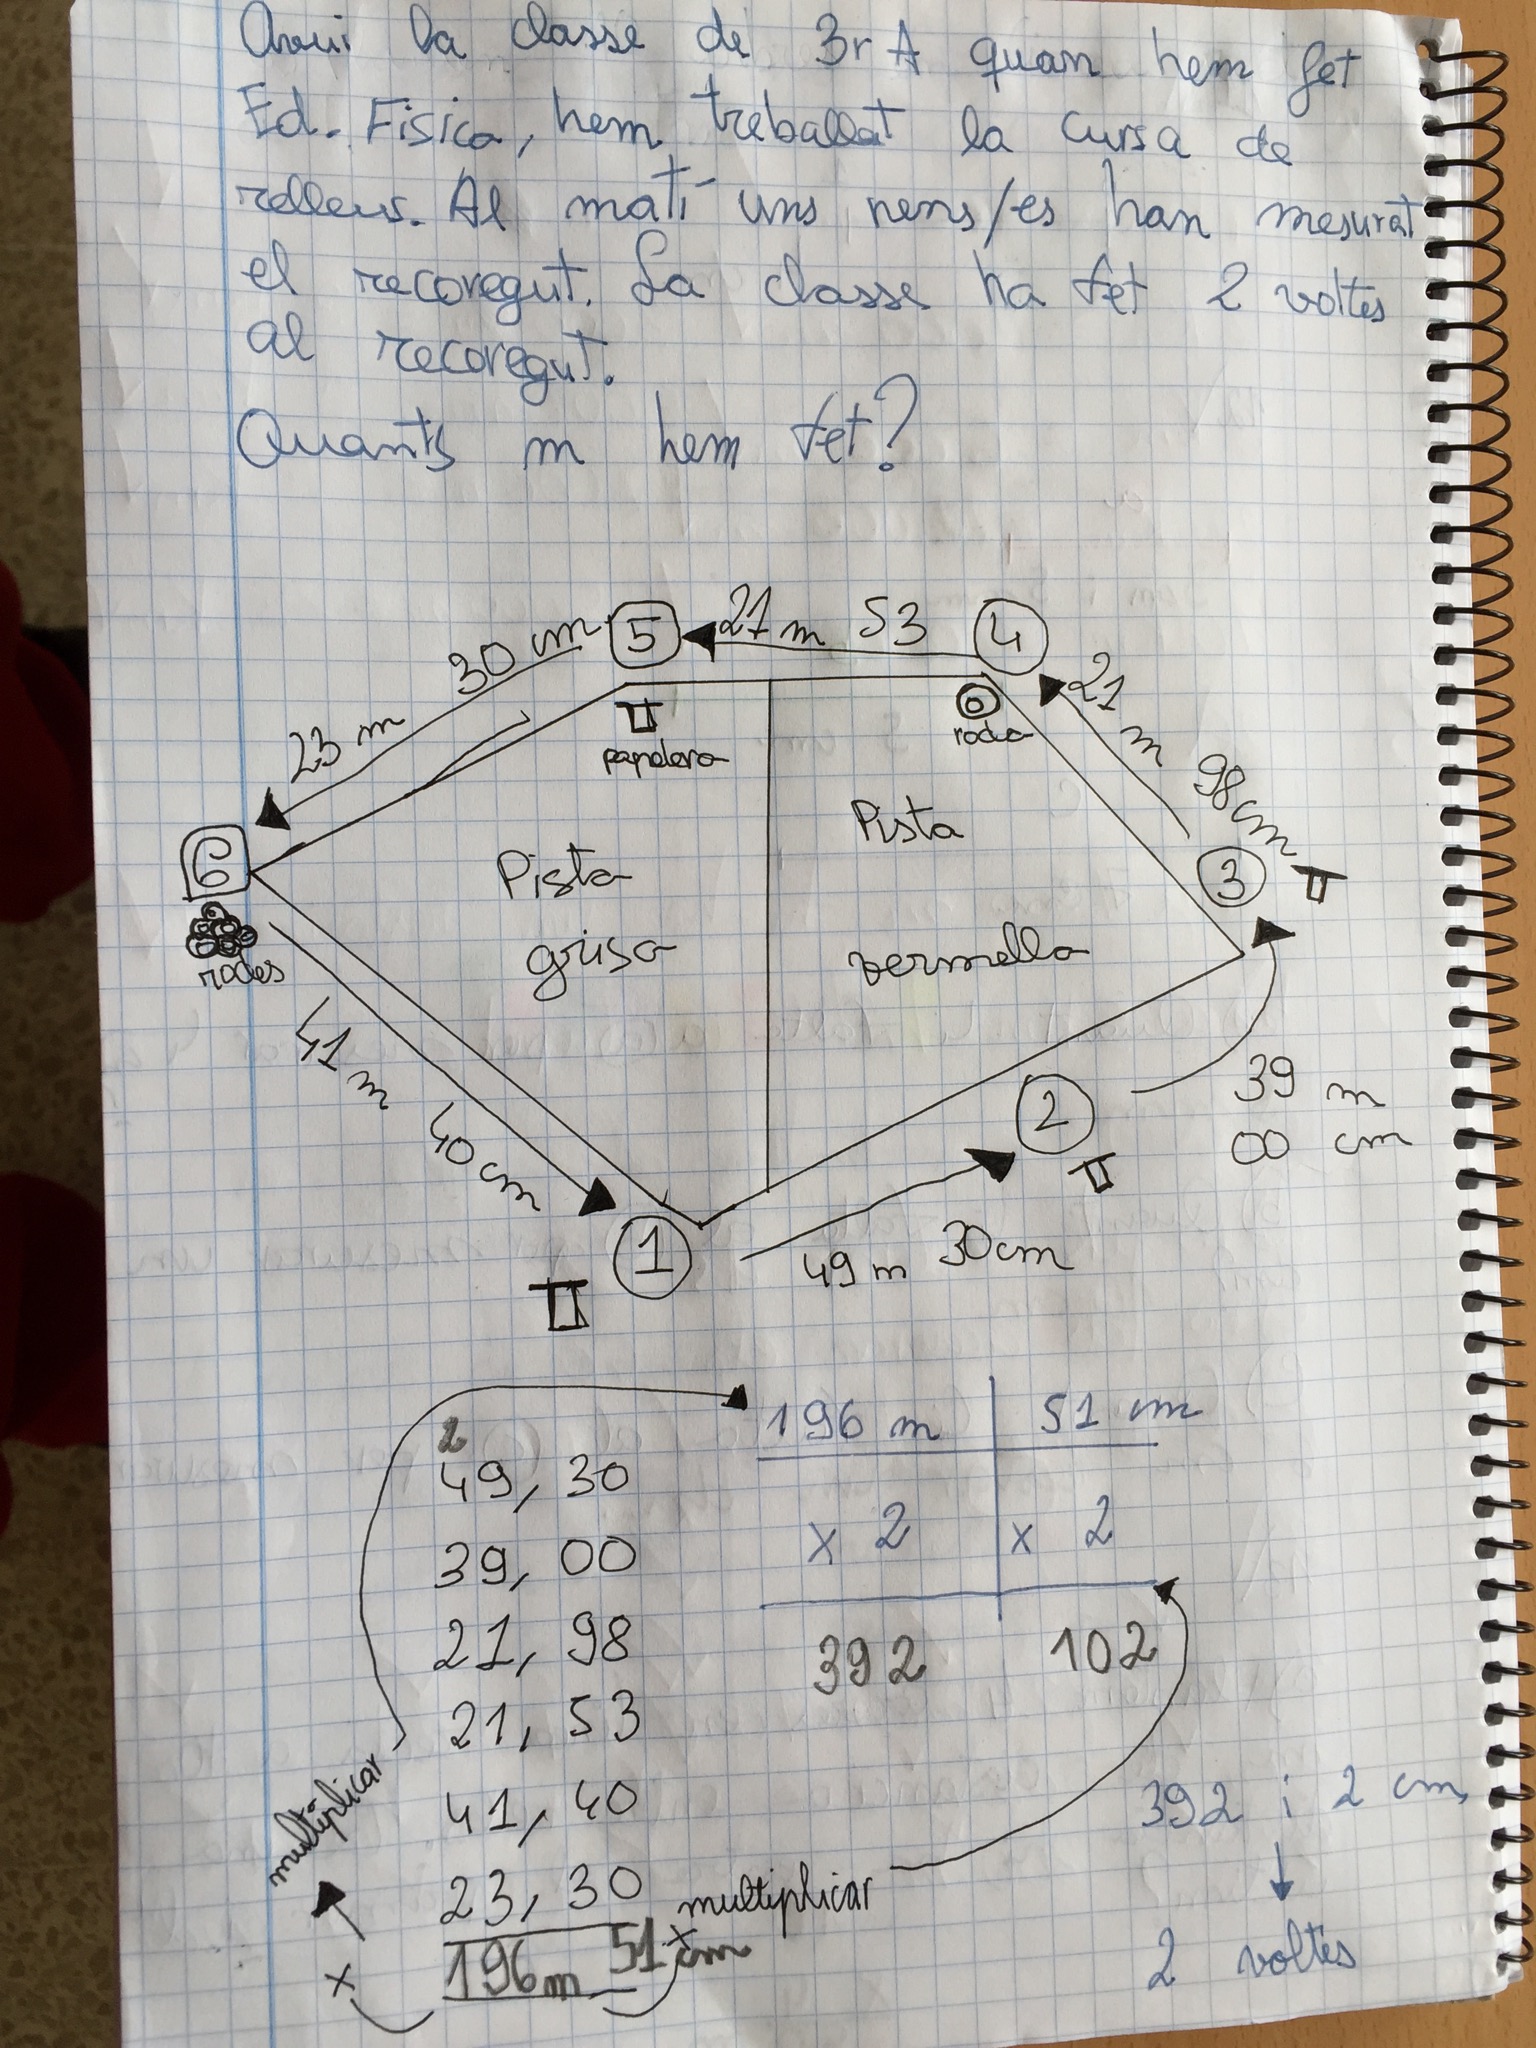 Avui la classe de 3r A quan hem fet
Ed. Fisica, hem treballat la cursa de
relleus. Al matí uns nens/es han mesurat
el recoregut. La classe ha fet 2 voltes
al recoregut.
Quants m hem fet?
5
21 m 53
4
30 cm
23 m
21 m 98 cm
papelera
roda
6
rodes
Pista
grisa
Pista
vermella
3
41 m 40 cm
2
39 m
00 cm
1
49 m 30 cm
2
49,30
39,00
21,98
21,53
41,40
23,30
196 m 51 cm
multiplicar
x
multiplicar
x
196 m 51 cm
x 2 x 2
392 102
392 i 2 cm
2 voltes